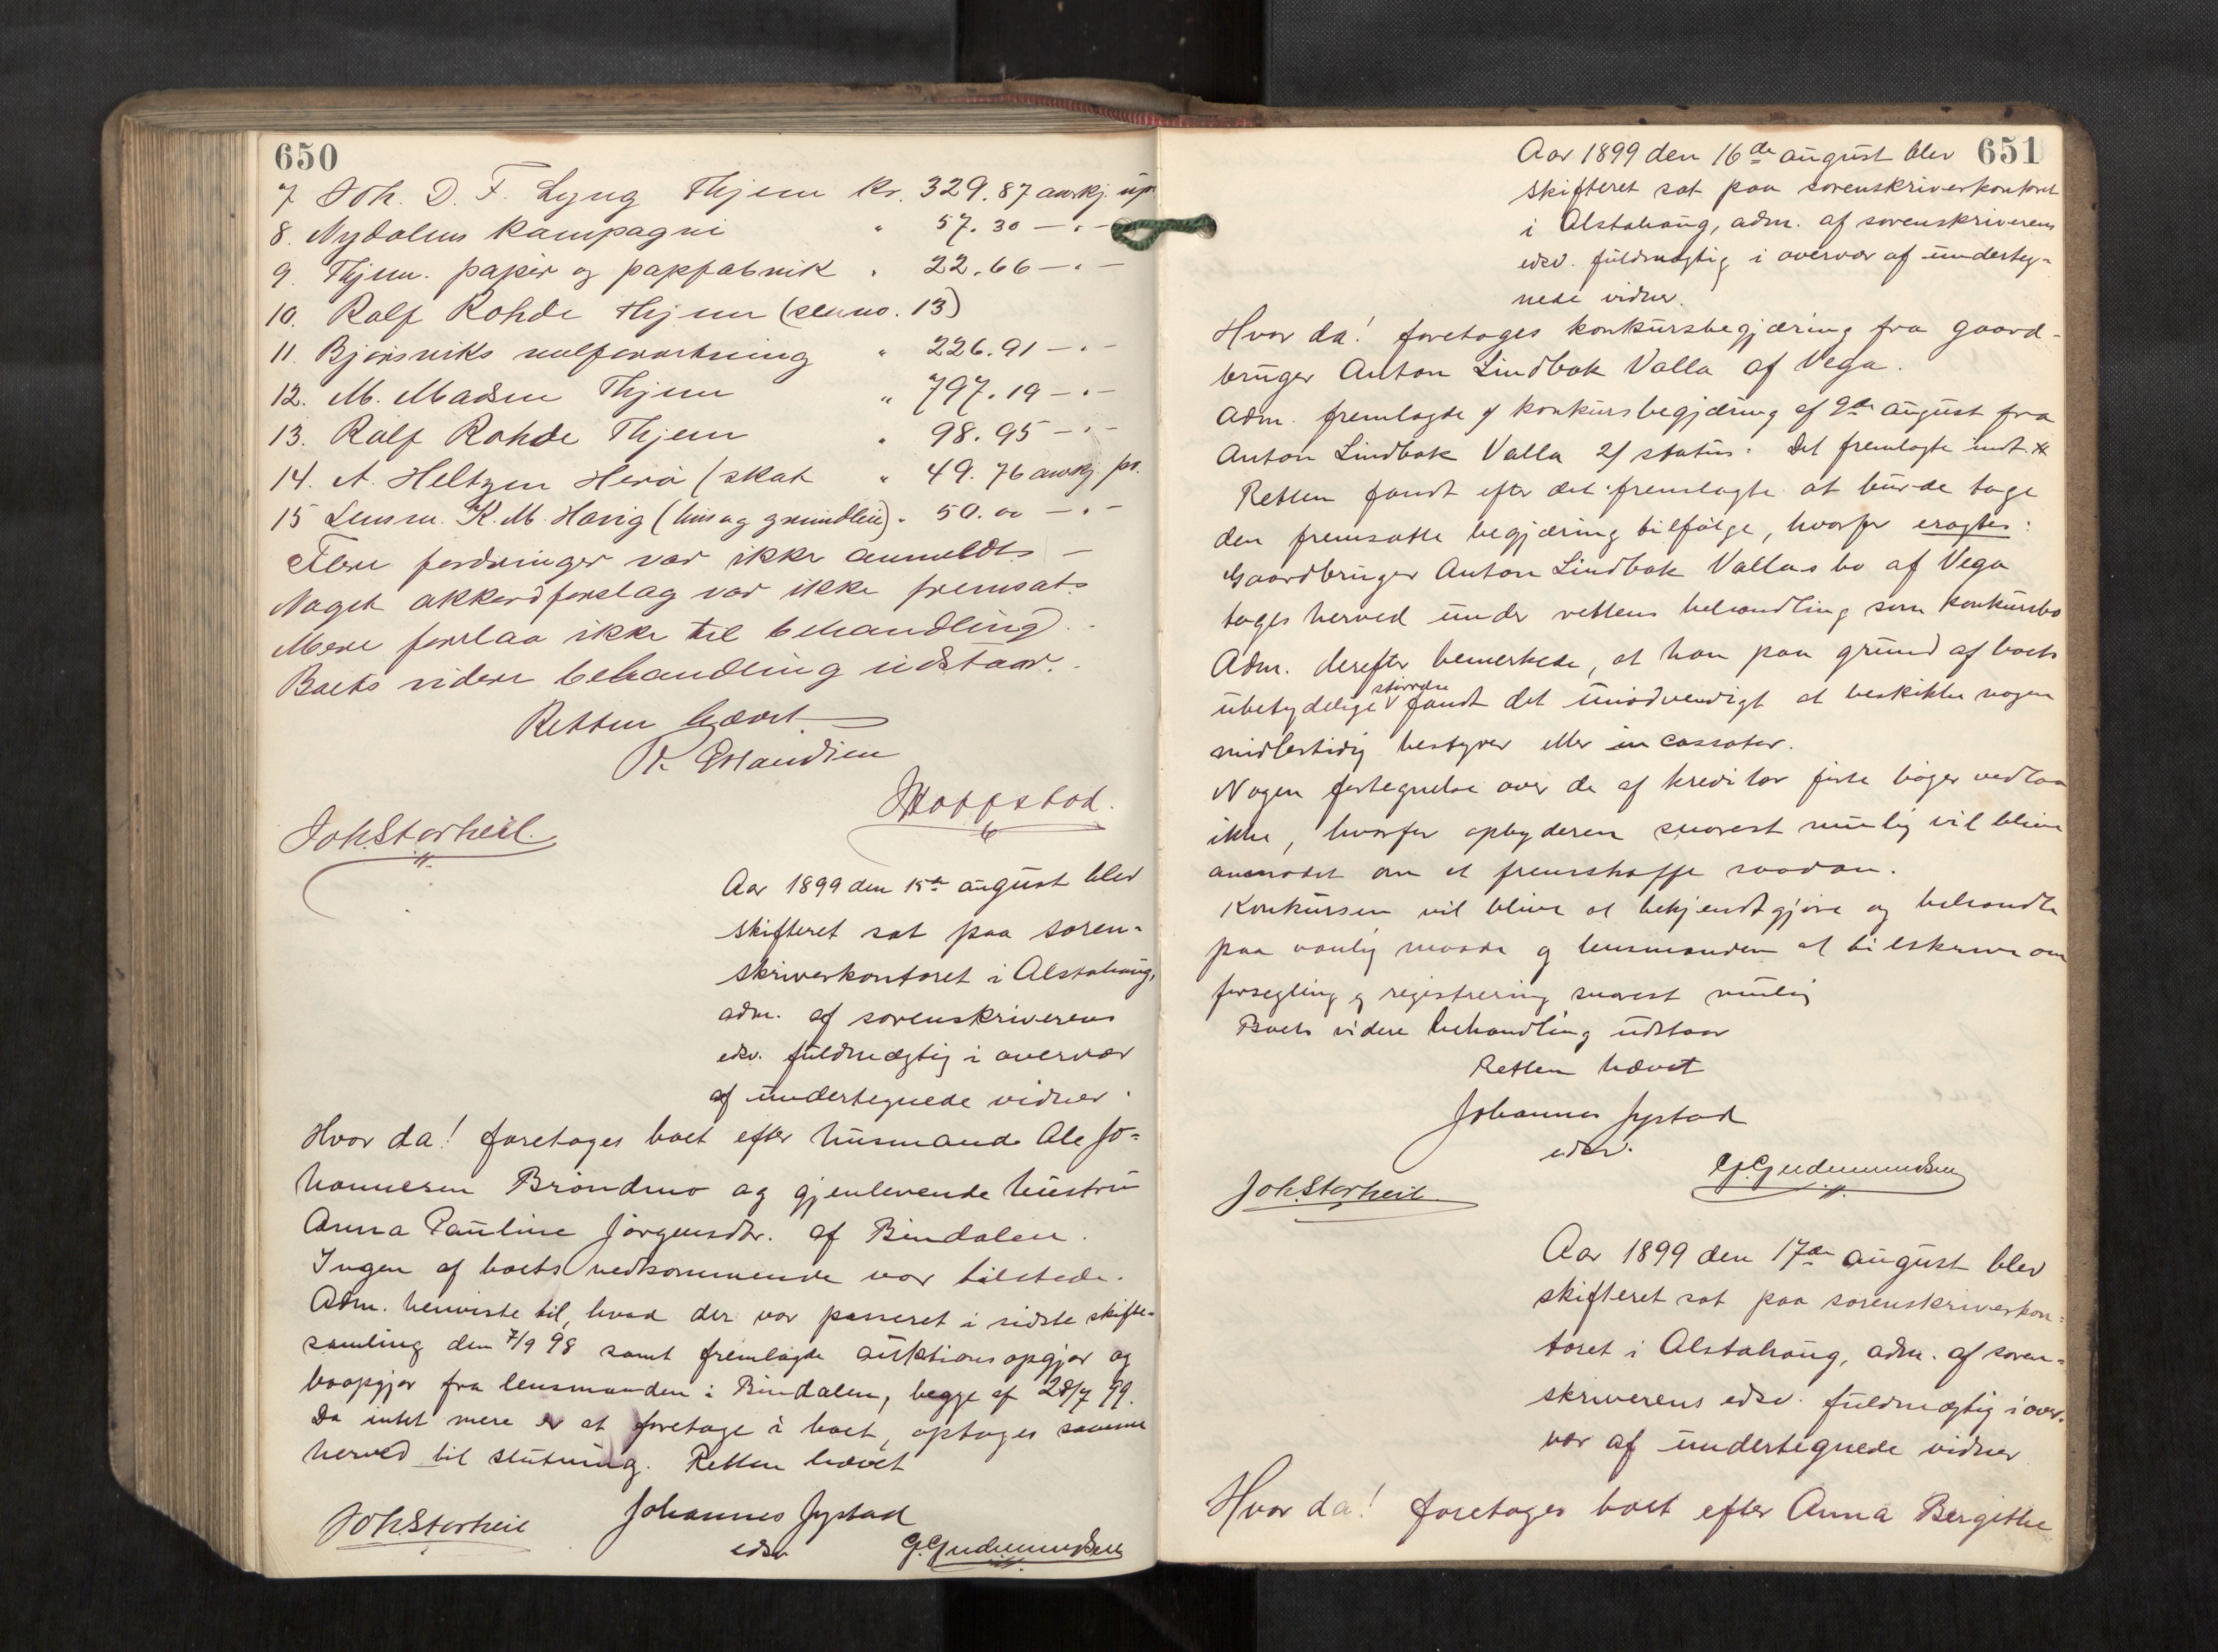 650
7 Joh. D. F. Lyng Thjem Kr. 329.87 anerkj. up.
8. Nydalens kompagni " 57.30 — " —
9. Thjem. papir og papfabrik " 22.66 — " —
10. Rolf Rohde Thjem (se no. 13)
11. Bjørsviks " 226.91 — " —
12. M. Madsen Thjem " 797.19 — " —
13. Rolf Rohde Thjem " 98.95 — " —
14. A. Heltzen Herø (skat " 49.76 anerkj. pr.
15 Lensm. K. M. Havig (hus og grundleie) " 50.00 — " —
Flere fordringer var ikke anmeldt. —
Noget akkordforslag var ikke fremsat.
Mere forelaa ikke til behandling.
Boets videre behandling udstaar.
Retten hævet
Joh Storheil.
Aar 1899 den 15de august blev
skifteret sat paa soren-
skriverkontoret i Alstahaug,
adm. af sorenskriverens
edsv. fuldmægtig i overvær
af undertegnede vidner.
Hvor da! foretages boet efter husmand Ole Jo-
hannesen Brøndmo og gjenlevende hustru
Anna Pauline Jørgensdtr. af Bindalen.
Ingen af boets vedkommende var tilstede.
Adm. henviste til, hvad der var passeret i sidste skifte-
samling den 7/9 98 samt fremlagde auktionsopgjør og
boopgjør fra lensmanden i Bindalen, begge af 28/7 99.
Da intet mere er at foretage i boet, optages samme
herved til slutning. Retten hævet
Johannes Jystad
edsv
Joh Storheil
G. Gudmundsen
651
Aar 1899 den 16de august blev
skifteret sat paa sorenskriverkontoret
i Alstahaug, adm. af sorenskriverens
edsv. fuldmægtig i overvær af underteg-
nede vidner.
Hvor da! foretages konkursbegjæring fra gaard-
bruger Anton Lindbak Valla af Vega.
Adm. fremlagde 1/ konkursbegjæring af 9de august fra
Anton Lindbak Valla 2/ status. Det fremlagte indt.
Retten fandt efter det fremlagte at burde tage
den fremsatte begjæring tilfølge, hvorfor eragtes:
Gaardbruger Anton Lindbak Vallas bo af Vega
tages herved under rettens behandling som konkursbo
Adm. derefter bemerkede, at han paa grund af boets
ubetydelige størrelse fandt det unødvendigt at beskikke nogen
midlertidig bestyrer eller incassator.
Nogen fortegnelse over de af kreditor førte bøger vedlaa
ikke, hvorfor opbyderen snarest mulig vil blive
anmodet om at fremskaffe saadan.
Konkursen vil blive at bekjendtgjøre og behandle
paa vanlig maade og lensmanden at tilskrive om
forsegling og registrering snarest mulig
Boets videre behandling udstaar
Retten hævet
Johannes Jystad
edsv.
Joh Storheil
G. Gudmundsen
Aar 1899 den 17de august blev
skifteret sat paa sorenskriverkon-
toret i Alstahaug, adm. af soren-
skriverens edsv. fuldmægtig i over-
vær af undertegnede vidner
Hvor da! foretages boet efter Anna Bergithe